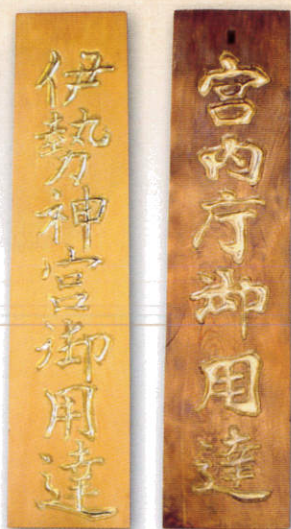 宮内庁御用達
伊勢神宮御用達